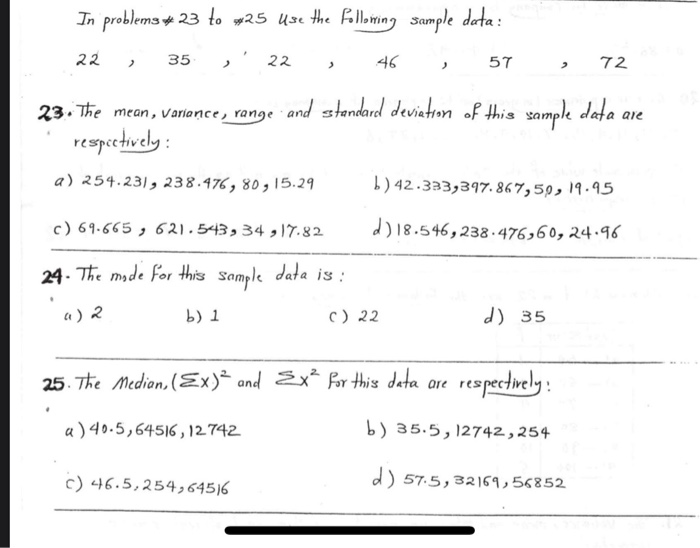 In problems # 23 to #25 Use the Following sample data:
22 , 35 , 22 , 46 , 57 , 72
23. The mean, variance, range and standard deviation of this sample data are
respectively:
a) 254.231, 238.476, 80, 15.29 b) 42.333, 397.867, 50, 19.95
c) 69.665, 621.543, 34, 17.82 d) 18.546, 238.476, 60, 24.96
24. The mode for this sample data is:
a) 2 b) 1 c) 22 d) 35
25. The Median, (Σx)² and Σx² for this data are respectively:
a) 40.5, 64516, 12742 b) 35.5, 12742, 254
c) 46.5, 254, 64516 d) 57.5, 32169, 56852